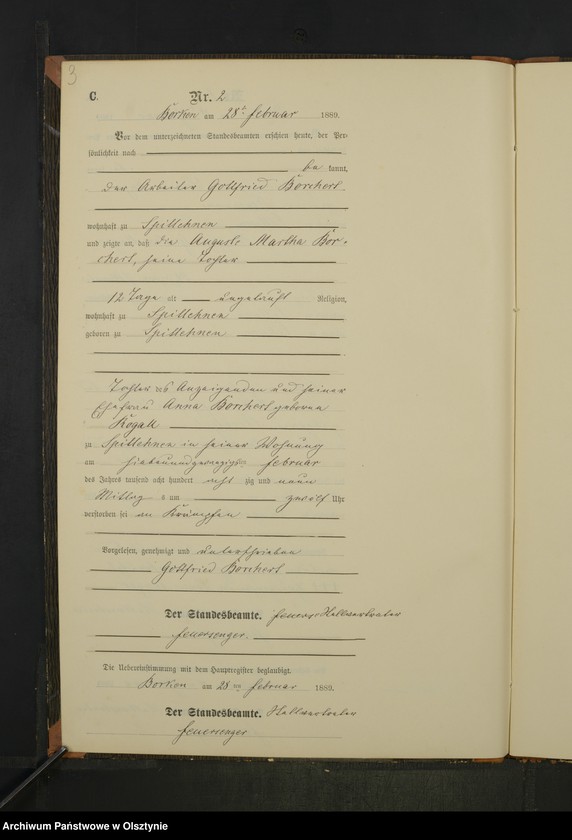 3
C.
Nr. 2
Borken am 28t Februar 1889.
Vor dem unterzeichneten Standesbeamten erschien heute, der Per-
sönlichkeit nach
be kannt,
der Arbeiter Gottfried Borchert
wohnhaft zu Spittehnen
und zeigte an, daß die Auguste Martha Bor-
chert, seine Tochter
12 Tage alt ungetauft Religion,
wohnhaft zu Spittehnen
geboren zu Spittehnen
Tochter des Anzeigenden und seiner
Ehefrau Anna Borchert geborene
Rogall
zu Spittehnen in seiner Wohnung
am siebenundzwanzigsten Februar
des Jahres tausend acht hundert acht zig und neun
Mittag s um zwölf Uhr
verstorben sei an Krämpfen
Vorgelesen, genehmigt und unterschrieben
Gottfried Borchert
Der Standesbeamte.
Die Uebereinstimmung mit dem Hauptregister beglaubigt.
Borken am 28 ten Februar 1889.
Der Standesbeamte. Stellvertreter
Archiwum Państwowe w Olsztynie